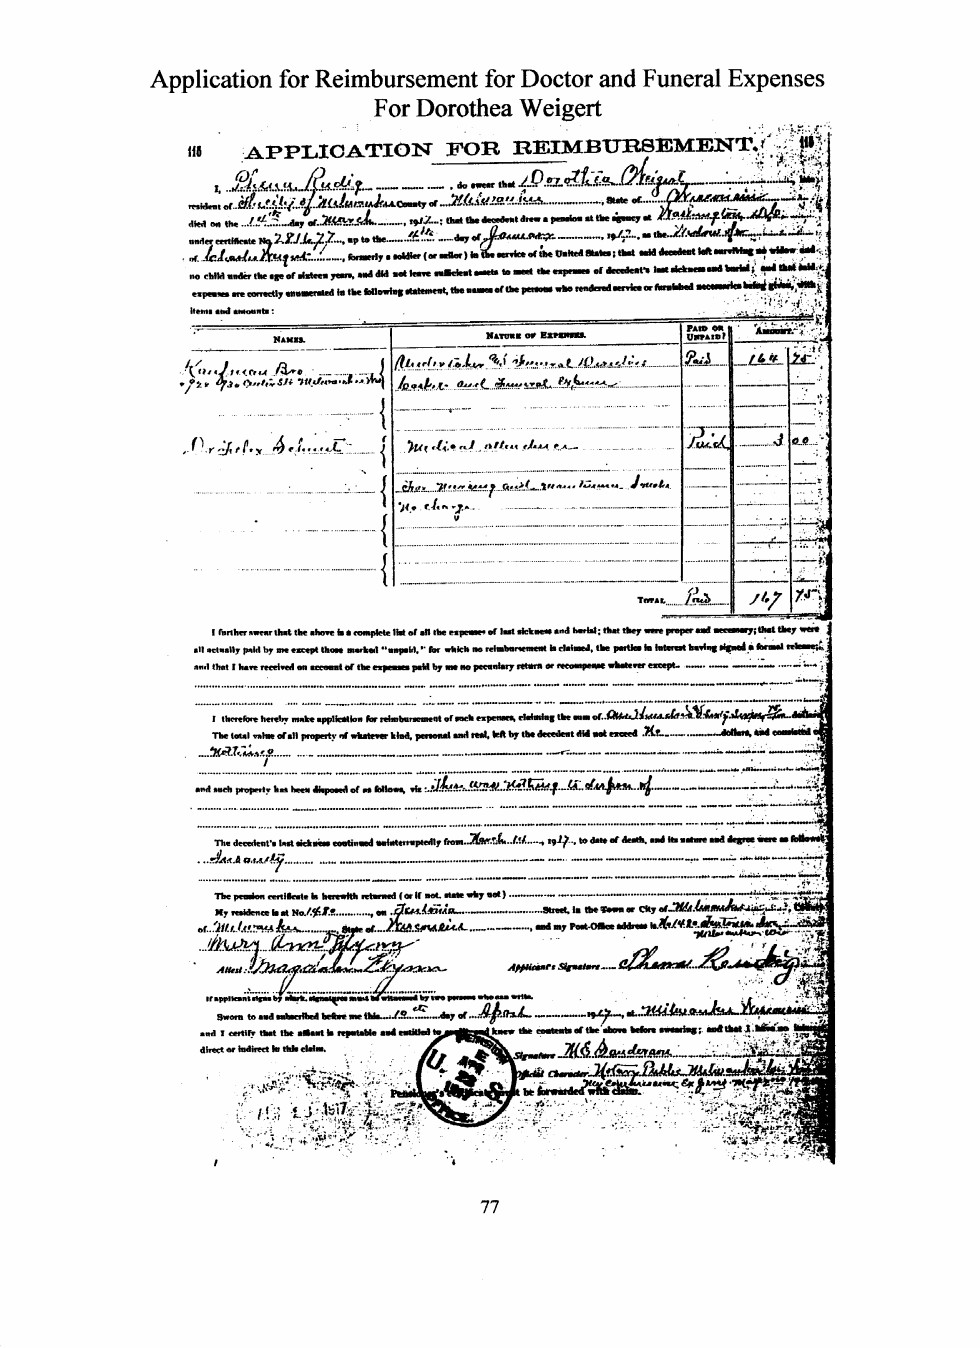 Application for Reimbursement for Doctor and Funeral Expenses
For Dorothea Weigert
116 APPLICATION FOR REIMBURSEMENT. 116
I, Phena Rudig, do swear that Dorothea Weigert, late
resident of the city of Milwaukee County of Milwaukee, State of Wisconsin
died on the 1st day of March, 1917; that the decedent drew a pension at the agency at Washington D.C.
under certificate No. 281677, up to the 4th day of January, 191, as the Widow of
of Charles Weigert, formerly a soldier (or sailor) in the service of the United States; that said decedent left surviving no widow and
no child under the age of sixteen years, and did not leave sufficient assets to meet the expenses of decedent's last sickness and burial; and that said
expenses are correctly enumerated in the following statement, the names of the persons who rendered service or furnished necessaries being given, with
items and amounts:
NAMES. NATURE OF EXPENSES. PAID OR UNPAID? AMOUNT.
Kaufman Bro Undertaker & Funeral Directors Paid 164 75
928 930 Center St Milwaukee Wis casket and Funeral Expense
Schmit Medical attendance Paid 3 00
for Nursing and
No charge
TOTAL Paid 167 75
I further swear that the above is a complete list of all the expenses of last sickness and burial; that they were proper and necessary; that they were
all actually paid by me except those marked "unpaid," for which no reimbursement is claimed, the parties in interest having signed a formal release;
and that I have received on account of the expenses paid by me no pecuniary return or recompense whatever except
I therefore hereby make application for reimbursement of such expenses, claiming the sum of One Hundred Sixty seven 75/100 dollars
The total value of all property of whatever kind, personal and real, left by the decedent did not exceed No dollars, and consisted of
Nothing
and such property has been disposed of as follows, viz: There was Nothing to dispose of
The decedent's last sickness continued uninterruptedly from March 1st, 1917, to date of death, and its nature and degree were as follows
Insanity
The pension certificate is herewith returned (or if not, state why not)
My residence is at No. 1480, on Teutonia Street, in the Town or City of Milwaukee, County
of Milwaukee, State of Wisconsin, and my Post-Office address is No 1480 Teutonia Ave
Milwaukee Wis
Mary Ann Flynn
Attest: Magdalen Flynn Applicant's Signature Phena Reudig
If applicant signs by mark, signatures must be witnessed by two persons who can write.
Sworn to and subscribed before me this 10th day of April, 1917, at Milwaukee Wisconsin
and I certify that the affiant is reputable and entitled to knew the contents of the above before swearing; and that I have no interest
direct or indirect in this claim.
Signature M E Sanderson
Official Character Notary Public Milwaukee
My Commission Exp
Pensioner's certificate must be forwarded with claim.
U. S. PENSION OFFICE APR 23
1917
77